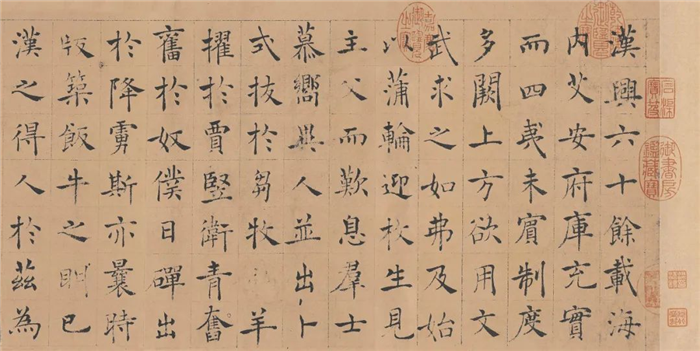 漢興六十餘載海
內艾安府庫充實
而四夷未賓制度
多闕上方欲用文
武求之如弗及始
以蒲輪迎枚生見
主父而歎息羣士
慕嚮異人並出卜
式拔於芻牧羊
擢於賈豎衛青奮
舊於奴僕日磾出
於降虜斯亦曩時
版築飯牛之朋已
漢之得人於茲為
御書房鑑藏寶